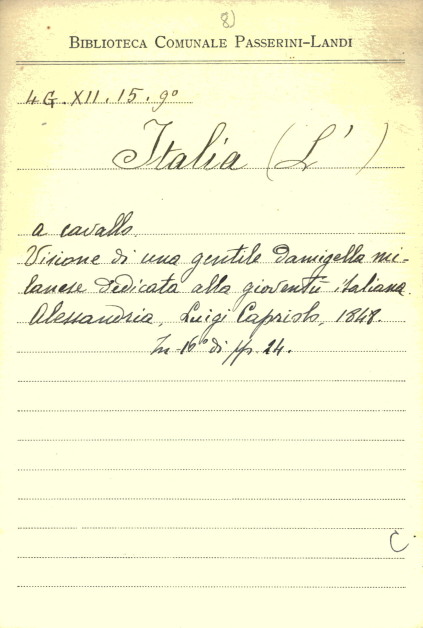 8)
BIBLIOTECA COMUNALE PASSERINI-LANDI
4G. XII. 15. 9º
Italia (L')
a cavallo.
Visione di una gentile damigella mi-
lanese dedicata alla gioventù italiana.
Alessandria, Luigi Capriolo, 1848.
In-16º di pp. 24.
C